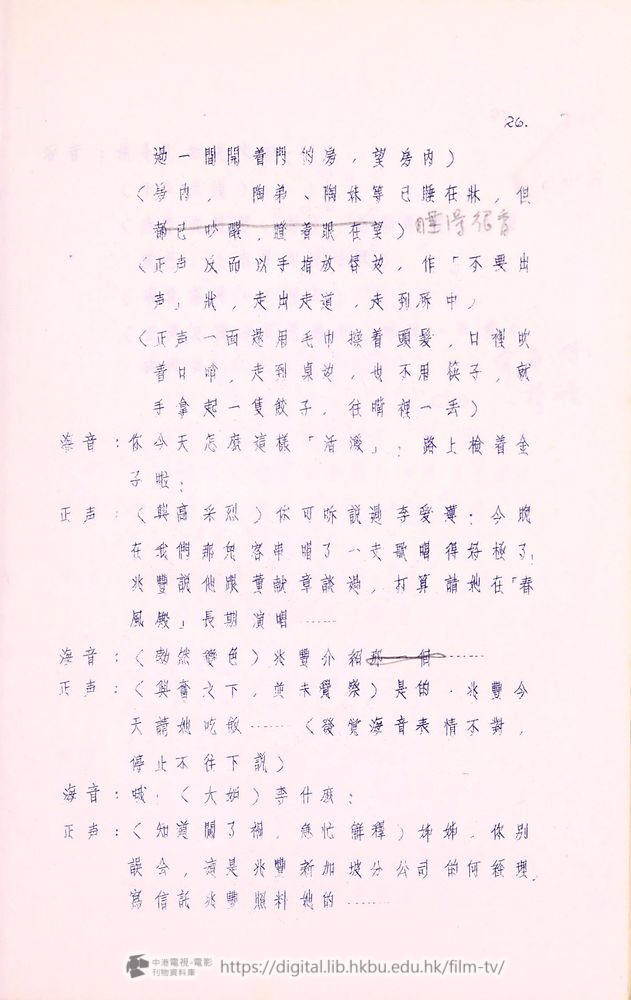 26.
過一間開着門的房，望房內）
（房內，　陶弟、陶妹等已睡在牀，但
都已吵醒，瞪着眼在望）睡得很香
（正声反而以手指放唇边，作「不要出
声」狀，走出走道，走到厛中）
（正声一面還用毛巾擦着頭髮，口裡吹
着口哨，走到桌边，也不用筷子，就
手拿起一隻餃子，往嘴裡一丢）
海音：你今天怎麽這樣「活潑」；路上檢着金
子啦；
正声：（興高采烈）你可听説過李愛蓮；今晚
在我們那兒客串唱了一支歌唱得好極了，
兆豐説他跟董献章談過，打算請她在「春
風殿」長期演唱……
海音：（勃然變色）兆豐介紹那一個……
正声：（興奮之下，並未覺察）是的．兆豐今
天請她吃飯……（發覺海音表情不對，
停止不往下說）
海音：喊．（大如）李什麽；
正声：（知道闖了禍，急忙解釋）姊姊，你別
誤会，這是兆豐新加坡分公司的何經理，
寫信託兆豐照料她的……
中港電視‧電影
刊物資料庫
https://digital.lib.hkbu.edu.hk/film-tv/